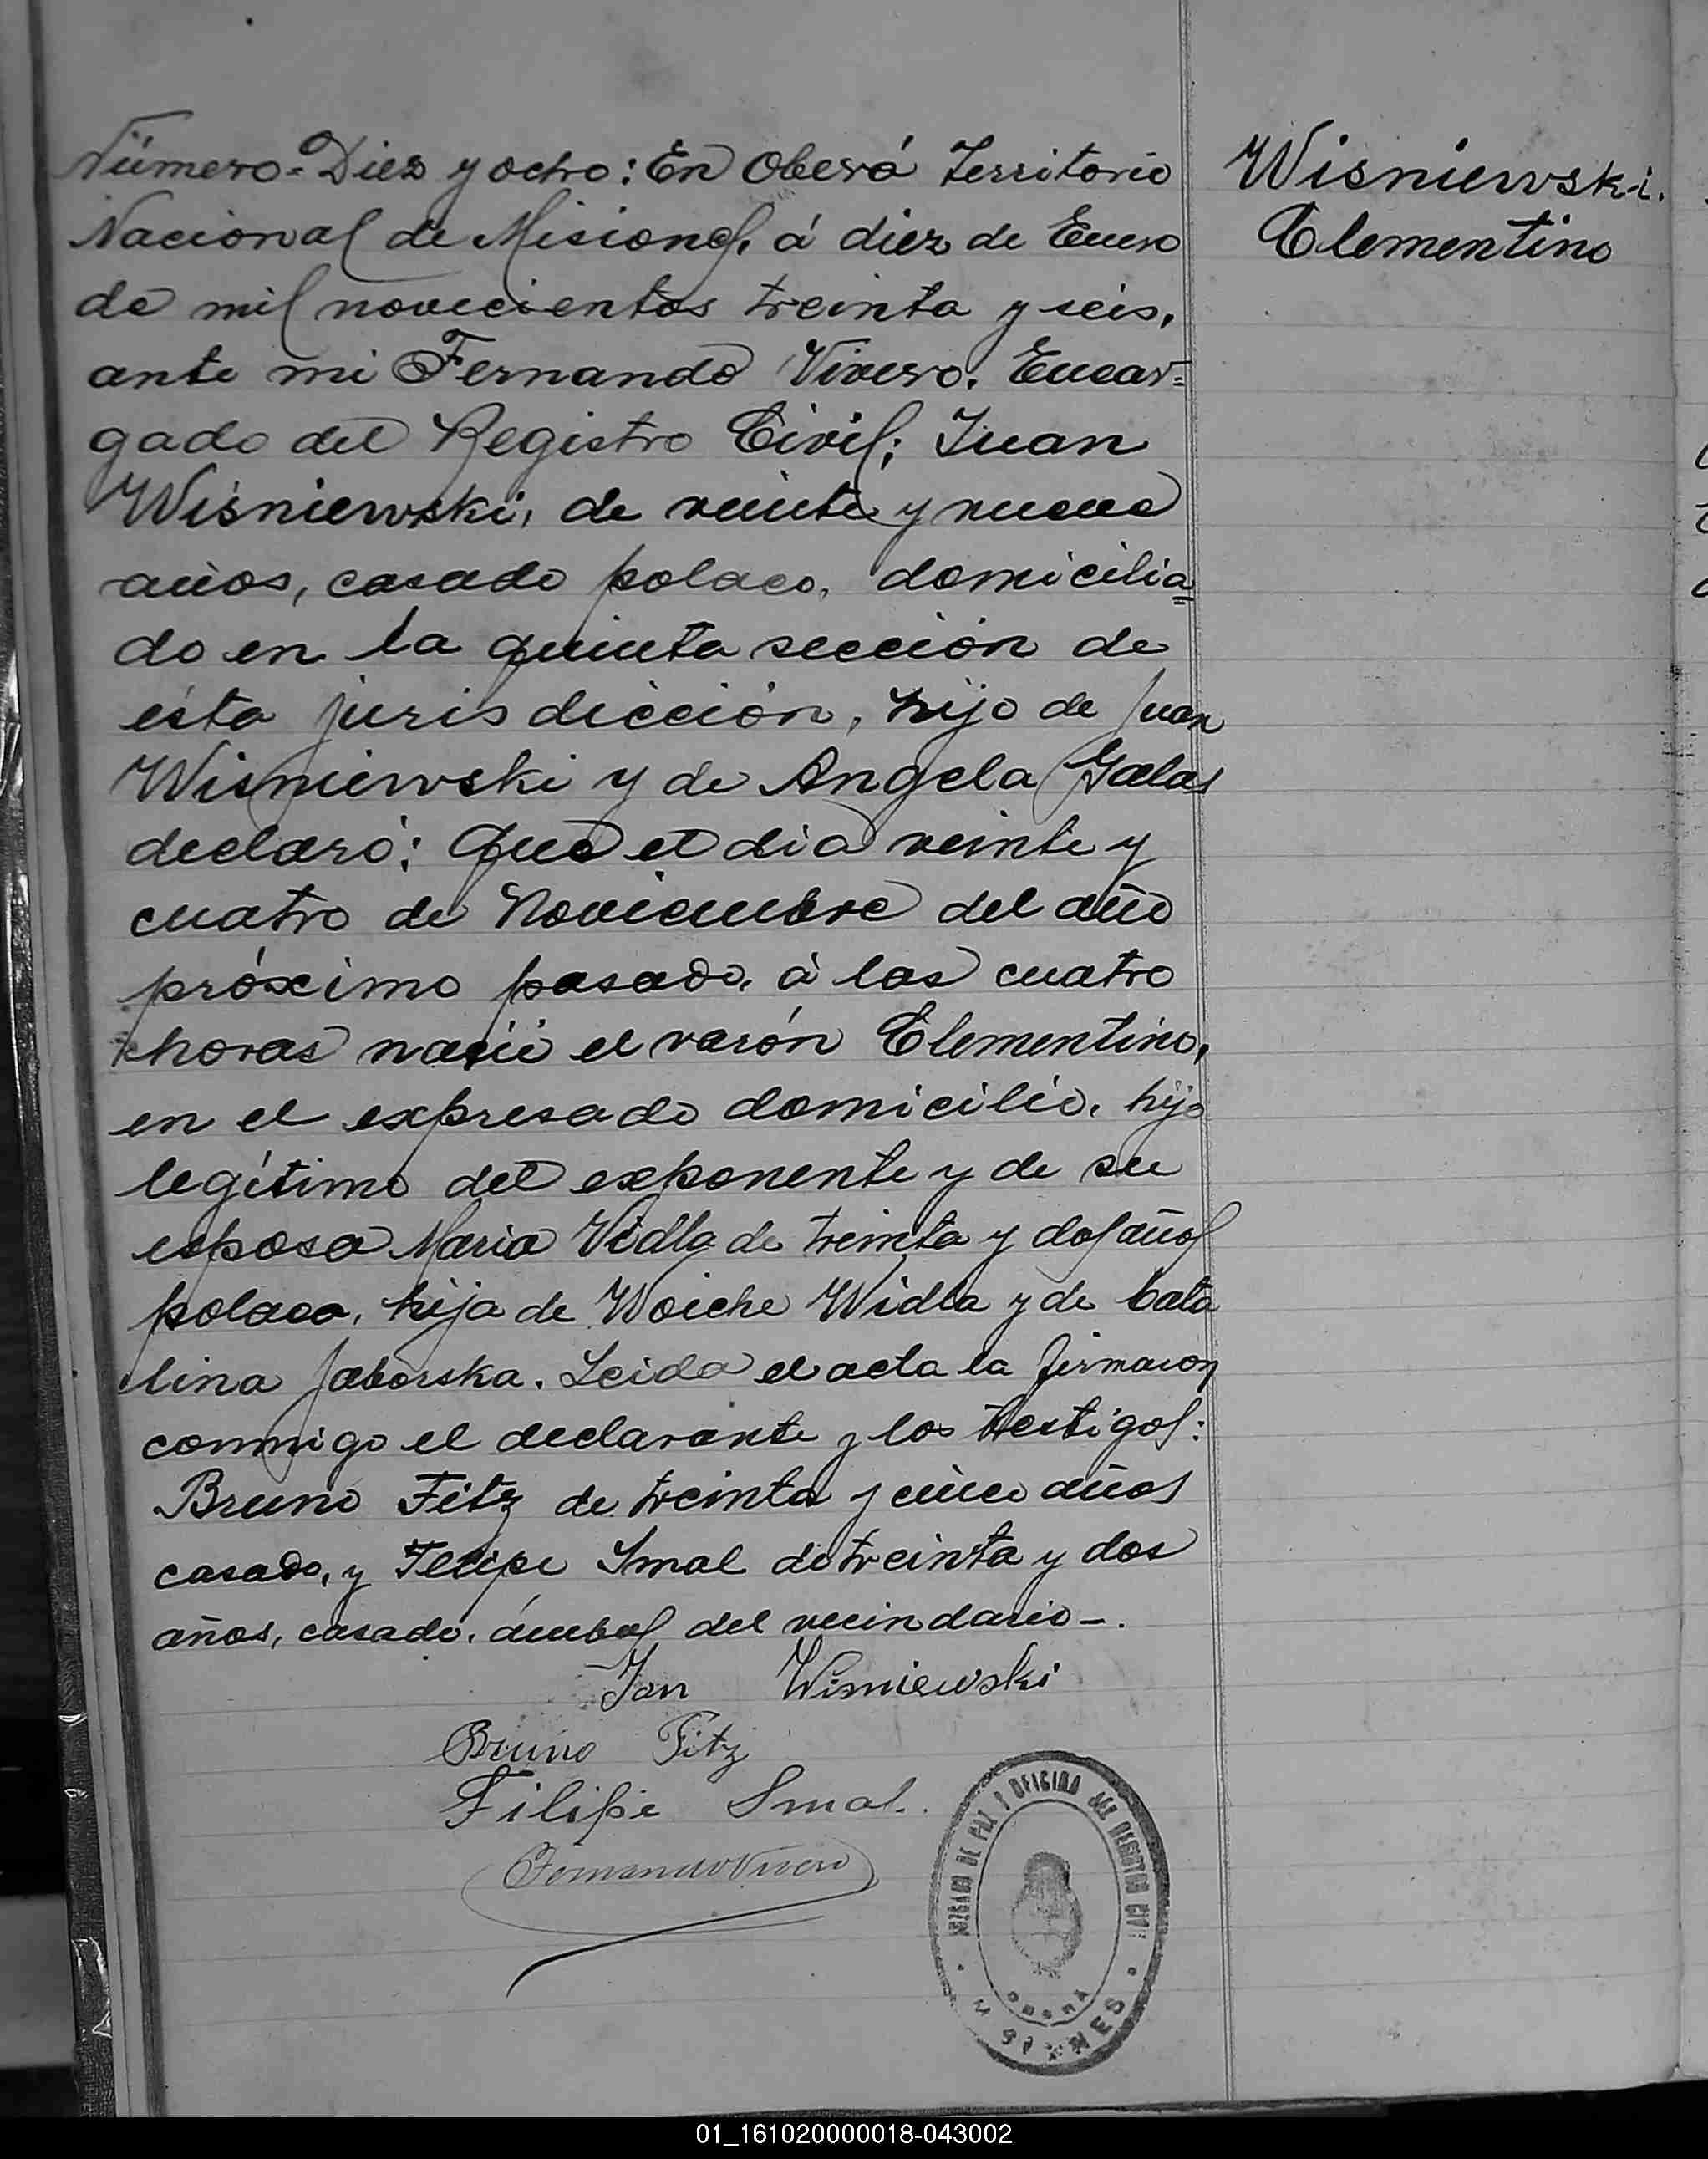 Número = Diez y ocho: En Oberá Territorio
Nacional de Misiones, á diez de Enero
de mil novecientos treinta y seis,
ante mi Fernando Vivero. Encar=
gado del Registro Civil; Juan
Wisniewski, de veinte y nueve
años, casado polaco, domicilia=
do en la quinta sección de
ésta jurisdicción, hijo de Juan
Wisniewski y de Angela Galas
declaró: Que el dia veinte y
cuatro de Noviembre del año
próximo pasado, á las cuatro
horas nació el varón Clementino,
en el expresado domicilio, hijo
legítimo del exponente y de su
esposa Maria Vidla de treinta y dos años
polaca, hija de Woiche Widla y de Cata
lina Jaborska. Leida el acta la firmaron
conmigo el declarante y los testigos:
Bruno Fitz de treinta y cinco años
casado, y Felipe Smal de treinta y dos
años, casado, ámbos del vecindario -.
Jan Wisniewski
Bruno Fitz
Filipe Smal.
Fernando Vivero
Wisniewski.
Clementino
JUZGADO DE PAZ Y OFICINA DEL REGISTRO CIVIL
OBERÁ
MISIONES
01_161020000018-043002